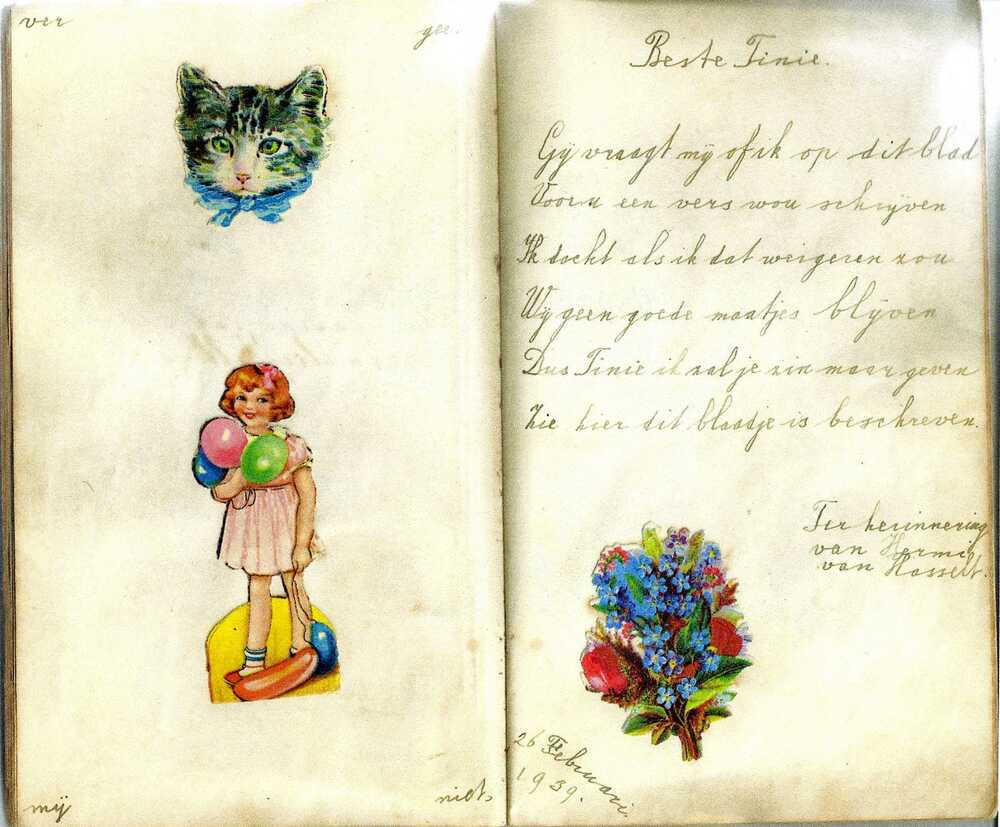 ver
gee.
mij
niets
Beste Tinie.
Gij vraagt mij of ik op dit blad
Voor u een vers wou schrijven
Ik docht als ik dat weigeren zou
Wij geen goede maatjes blijven
Dus Tinie ik zal je zin maar geven
Zie hier dit blaadje is beschreven.
Ter herinnering
van Hermin
van Hasselt.
26 Februari
1939.